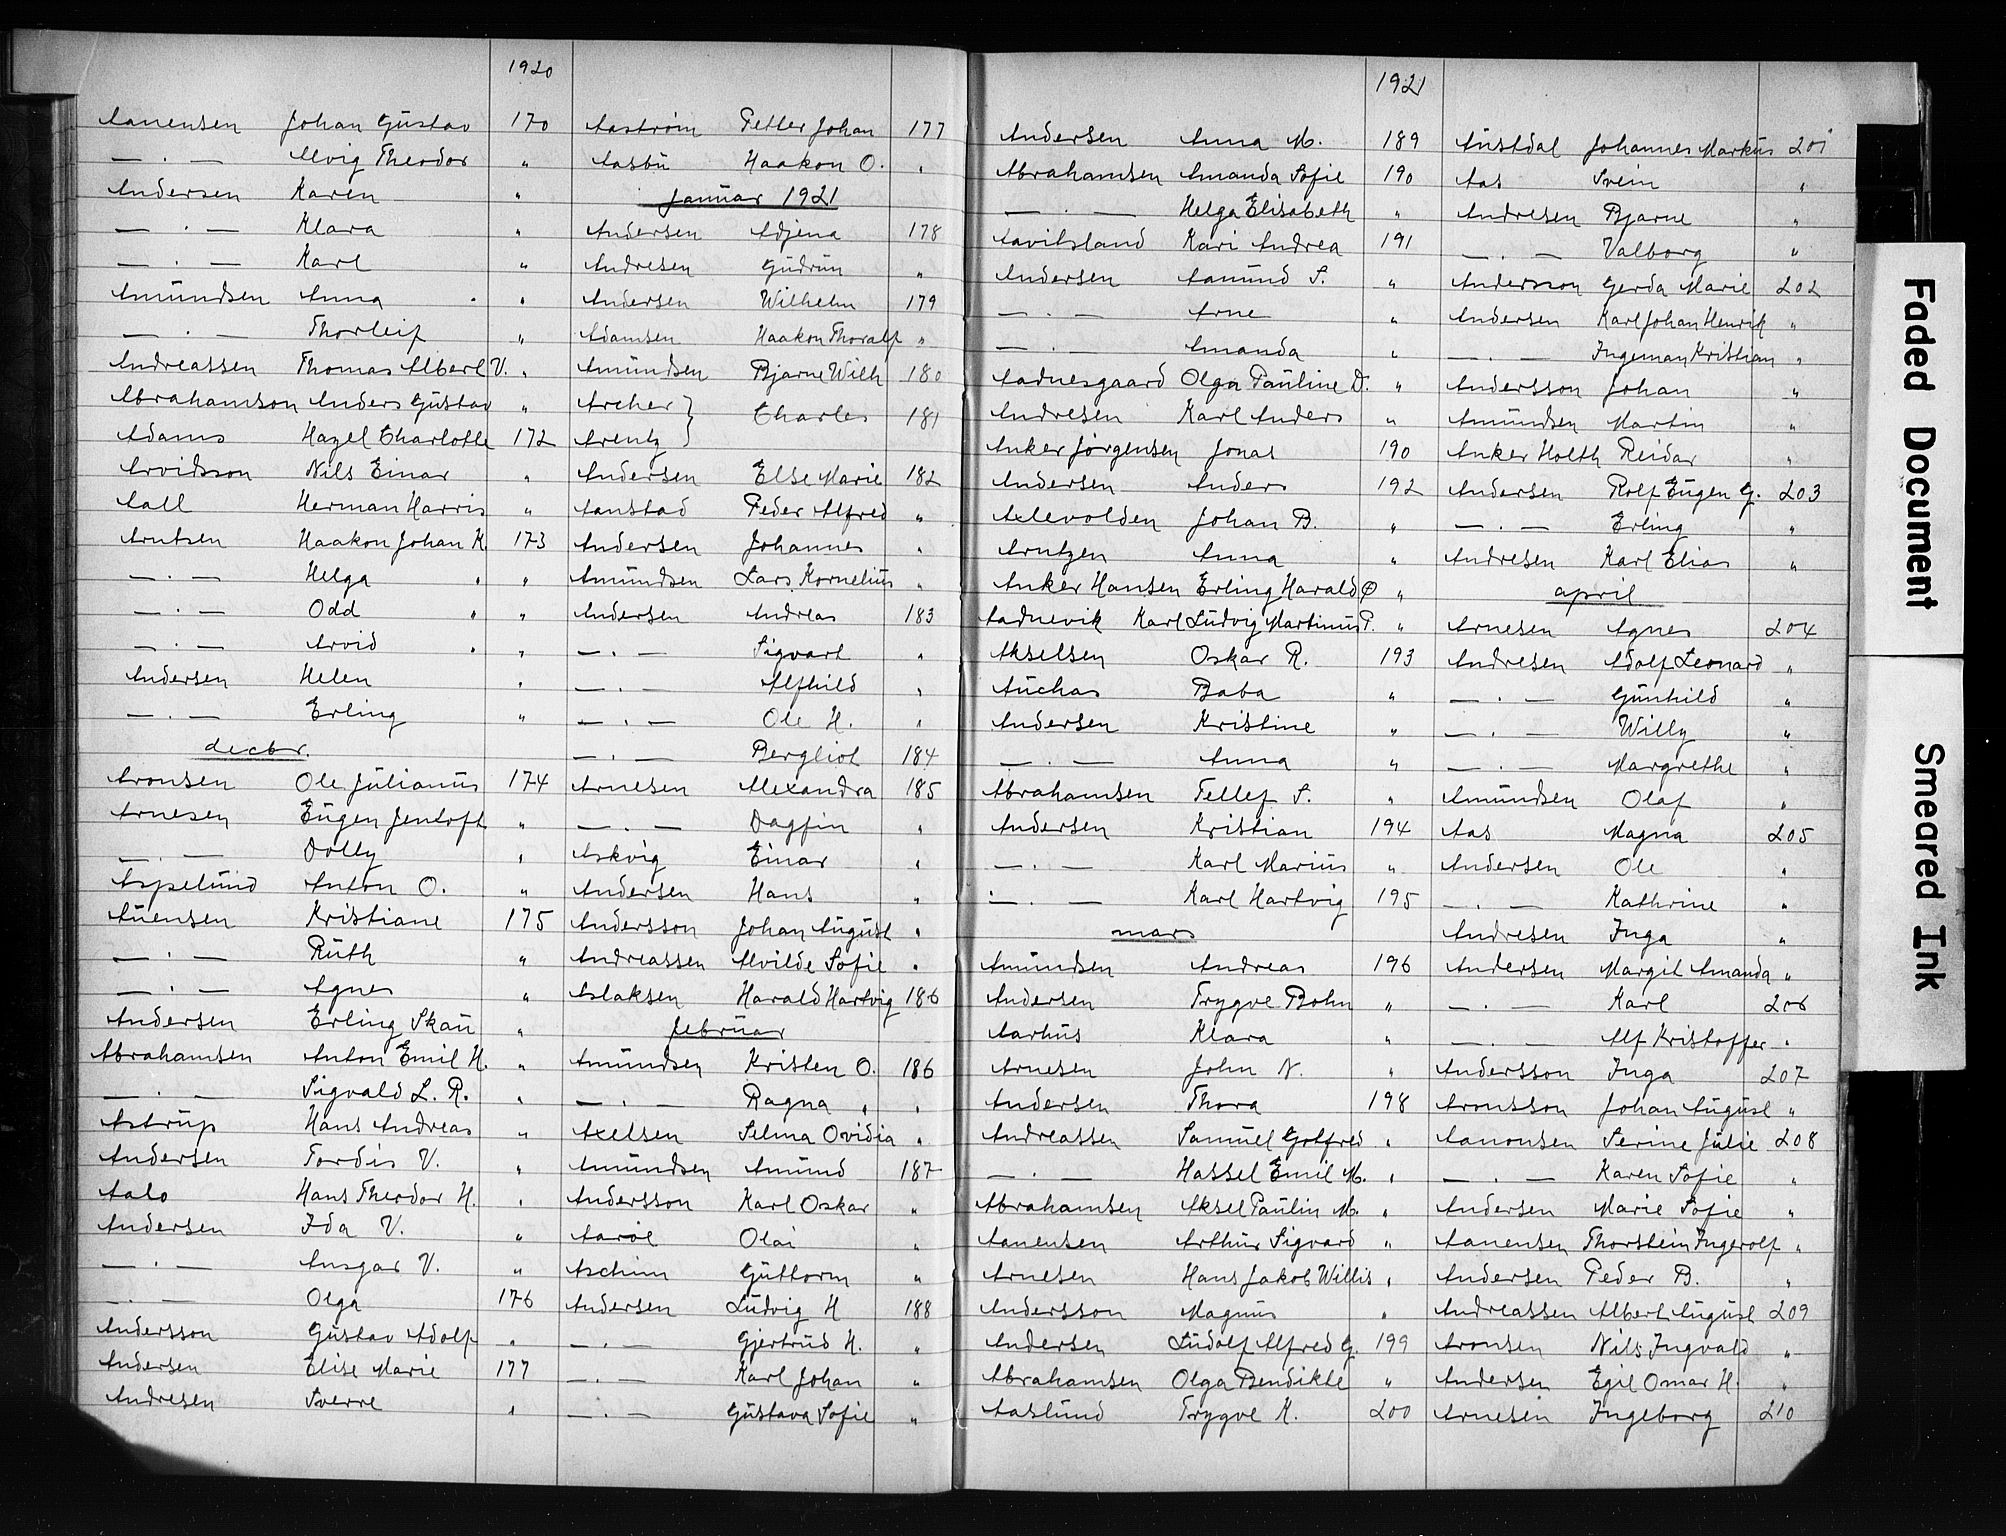 1920
Aanensen Johan Gustav 170
— . — Alvig Theodor "
Andersen Karen "
— . — Klara "
— . — Karl "
Amundsen Anna "
— . — Thorleif "
Andreassen Thomas Albert V. "
Abrahamson Anders Gustav "
Adams Hazel Charlotte 172
Arvidsson Nils Einar "
Aall Herman Harris "
Arntsen Haakon Johan K. 173
— . — Helga "
— . — Odd "
— . — Arvid "
Andersen Helen "
— . — Erling "
decbr.
Aronsen Ole Julianus 174
Arnesen Eugen Jentoft "
— . — Dolly "
Aspelund Anton O. "
Auensen Kristiane 175
— . — Ruth "
— . — Agnes "
Andersen Erling Skau "
Abrahamsen Anton Emil H. "
— . — Sigvald L. R. "
Astrup Hans Andreas "
Andersen Tordis V. "
Aalo Hans Theodor H. "
Andersen Ida V. "
— . — Ansgar V. "
— . — Olga 176
Andersson Gustav Adolf "
Andersen Elise Marie 177
Andresen Sverre "
Aastrøm Petter Johan 177
Aasbu Haakon O. "
januar 1921
Andersen Adjena 178
Andresen Gudrun "
Andersen Wilhelm 179
Adamsen Haakon Thoralf "
Amundsen Bjarne Wilh 180
Archer }
Arentz } Charles 181
Andersen Else Marie 182
Aanstad Peder Alfred "
Andersen Johannes "
Amundsen Lars Kornelius "
Andersen Andreas 183
— . — Sigvart "
— . — Alfhild "
— . — Ole H. "
— . — Bergliot 184
Arnesen Alexandra 185
— . — Dagfin "
Askvig Einar "
Andersen Hans "
Andersson Johan August "
Andreassen Alvilde Sofie "
Aslaksen Harald Hartvig 186
februar
Amundsen Kristen O. 186
— . — Ragna "
Axelsen Selma Ovidia "
Amundsen Amund 187
Andersson Karl Oskar "
Aarøe Olai "
Aschim Guttorm "
Andersen Ludvig H 188
— . — Gjertrud H. "
— . — Karl Johan "
— . — Gustava Sofie "
1921
Andersen Anna M. 189
Abrahamsen Amanda Sofie 190
— . — Helga Elisabeth "
Aavitsland Kari Andrea 191
Andersen Aamund S. "
— . — Arne "
— . — Amanda "
Aadnesgaard Olga Pauline D. "
Andresen Karl Anders "
Anker Jørgensen Jonas 190
Andersen Anders 192
Axlevolden Johan B. "
Arntzen Anna "
Anker Hansen Erling Harald Ø "
Aadnevik Karl Ludvig Martinus P. "
Akselsen Oskar R. 193
Auchas Baba "
Andersen Kristine "
— . — Anna "
Abrahamsen Tellef S. "
Andersen Kristian 194
— . — Karl Marius "
— . — Karl Hartvig 195
mars
Amundsen Andreas 196
Andersen Trygve Bohn "
Aarhus Klara "
Arnesen John N. "
Andersen Thora 198
Andreassen Samuel Gotfred "
— . — Hassel Emil M. "
Abrahamsen Aksel Paulin M. "
Aanensen Arthur Sigvard "
Arnesen Hans Jakob Willis "
Andersson Magnus "
Andersen Ludolf Alfred G. 199
Abrahamsen Olga Bendikte "
Aaslund Trygve K. 200
Austdal Johannes Markus 201
Aas Svein "
Andresen Bjarne "
— . — Valborg "
Andersson Gerda Marie 202
Andersen Karl Johan Henrik "
— . — Ingeman Kristian "
Andersson Johan "
Amundsen Martin "
Anker Holth Reidar "
Andersen Rolf Eugen G. 203
— . — Erling "
Andresen Karl Elias "
april
Arnesen Agnes 204
Andresen Adolf Leonard "
— . — Gunhild "
— . — Willy "
— . — Margrethe "
Amundsen Olaf "
Aas Magna 205
Andersen Ole "
— . — Kathrine "
Andresen Inga "
Andersen Margit Amanda "
— . — Karl 206
— . — Alf Kristoffer "
Andersson Inga 207
Aronsson Johan August "
Aanonsen Serine Julie 208
— . — Karen Sofie "
Andersen Marie Sofie "
Aanensen Thorstein Ingerolf "
Andersen Peder B. "
Andreassen Albert August 209
Aronsen Nils Ingvald "
Andersen Egil Omar H. "
Arnesen Ingeborg 210
Faded Document
Smeared Ink